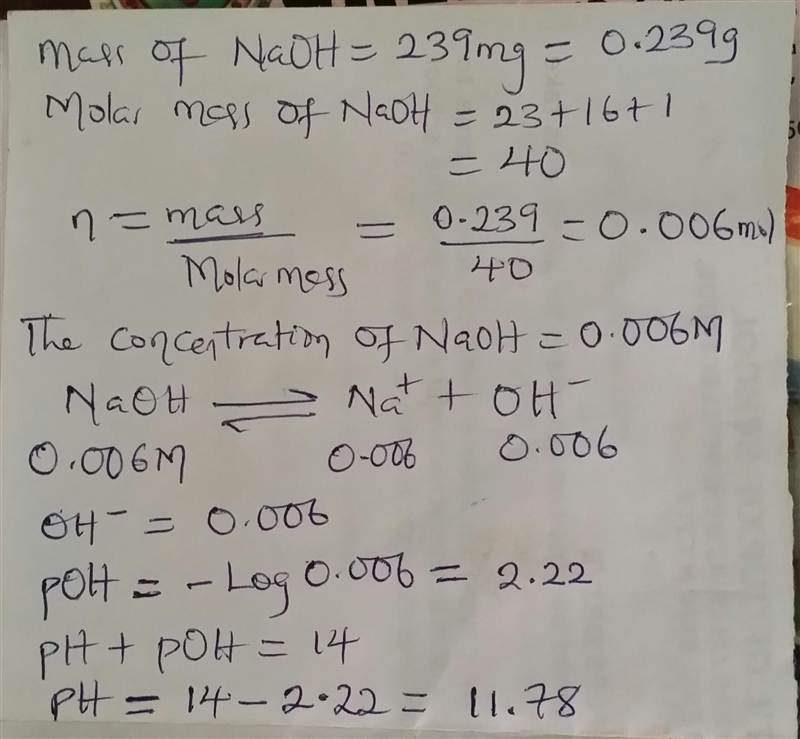 Mass of NaOH = 239mg = 0.239g
Molar mass of NaOH = 23+16+1
= 40
n = mass / Molar mass = 0.239 / 40 = 0.006mol
The concentration of NaOH = 0.006M
NaOH ⇌ Na⁺ + OH⁻
0.006M 0.006 0.006
OH⁻ = 0.006
pOH = - Log 0.006 = 2.22
pH + pOH = 14
pH = 14 - 2.22 = 11.78